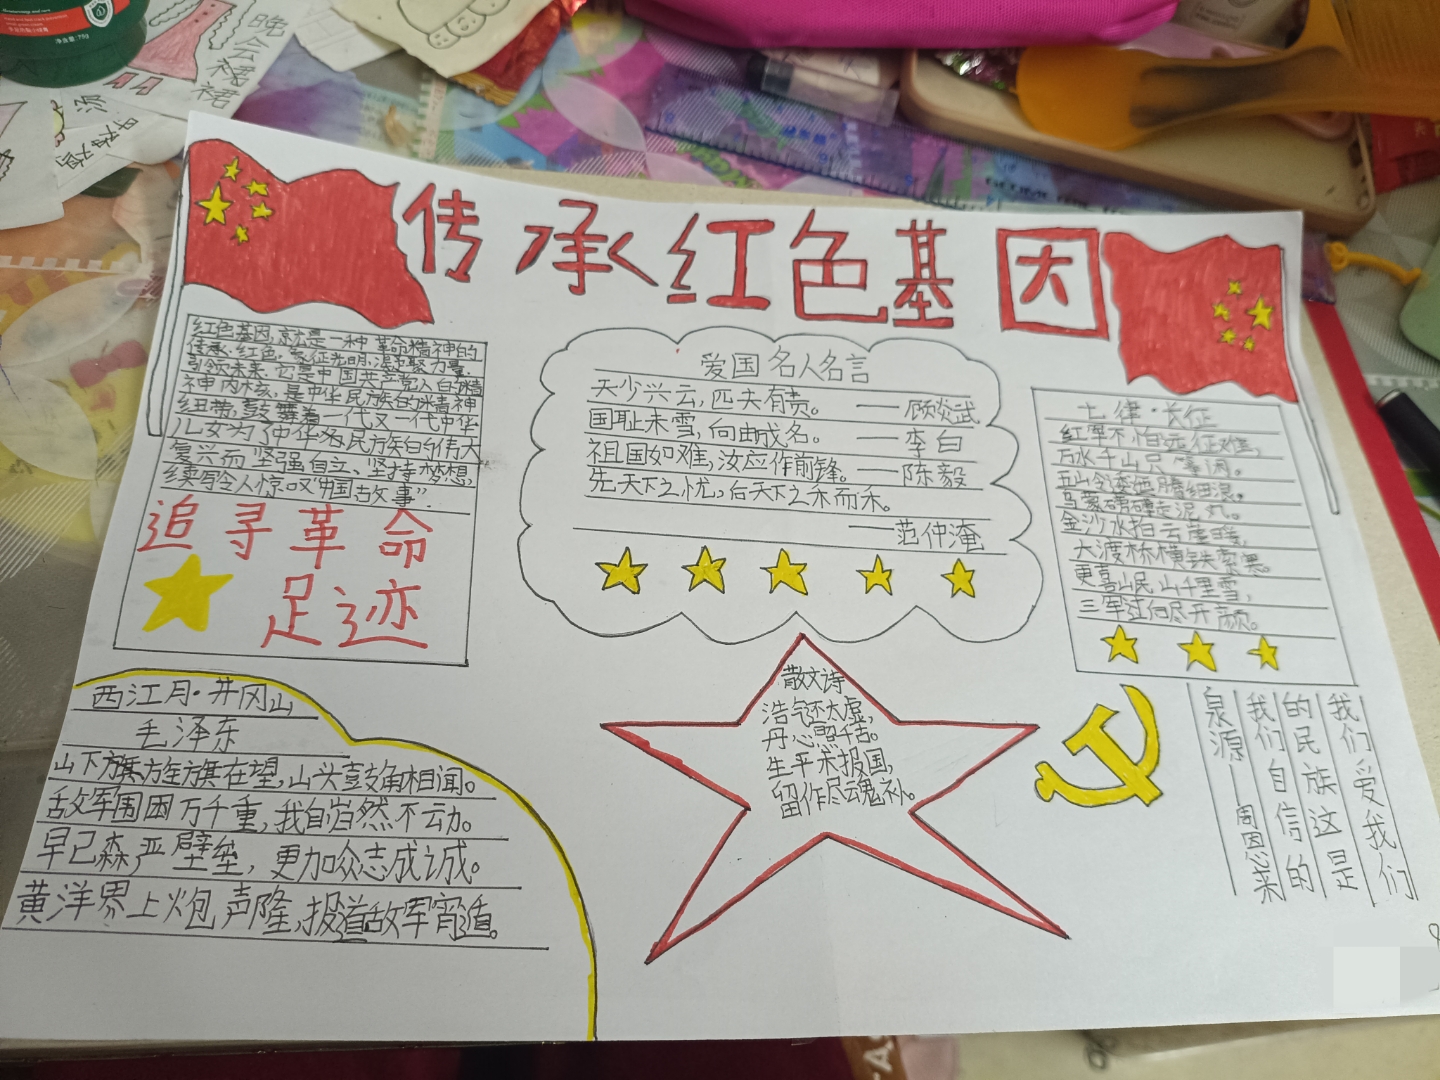 晚会裙裙
传承红色基因
红色基因,亦就是一种革命精神的
传承.红色,象征光明,凝聚力量,
引领未来.它是中国共产党人的精
神内核,是中华民族的精神
纽带,鼓舞着一代又一代中华
儿女为了中华名民族的伟大
复兴而坚强自立、坚持梦想,
续写令人惊叹"中国故事".
追寻革命
足迹
爱国名人名言
天少兴云,匹夫有责。——顾炎武
国耻未雪,何由成名。——李白
祖国如难,汝应作前锋。——陈毅
先天下之忧,后天下之禾而禾。
——范仲淹
七律·长征
红军不怕远征难,
万水千山只等闲。
金沙水拍云崖暖,
大渡桥横铁索寒。
更喜岷山千里雪,
三军过后尽开颜。
西江月·井冈山
毛泽东
山下旌旗在望,山头鼓角相闻。
敌军围困万千重,我自岿然不动。
早已森严壁垒,更加众志成诚。
黄洋界上炮声隆,报道敌军宵遁。
散文诗
浩气还太虚,
丹心照千古。
生平未报国,
留作尽魂补。
我们爱我们
的民族这是
我们自信的
泉源—周恩来